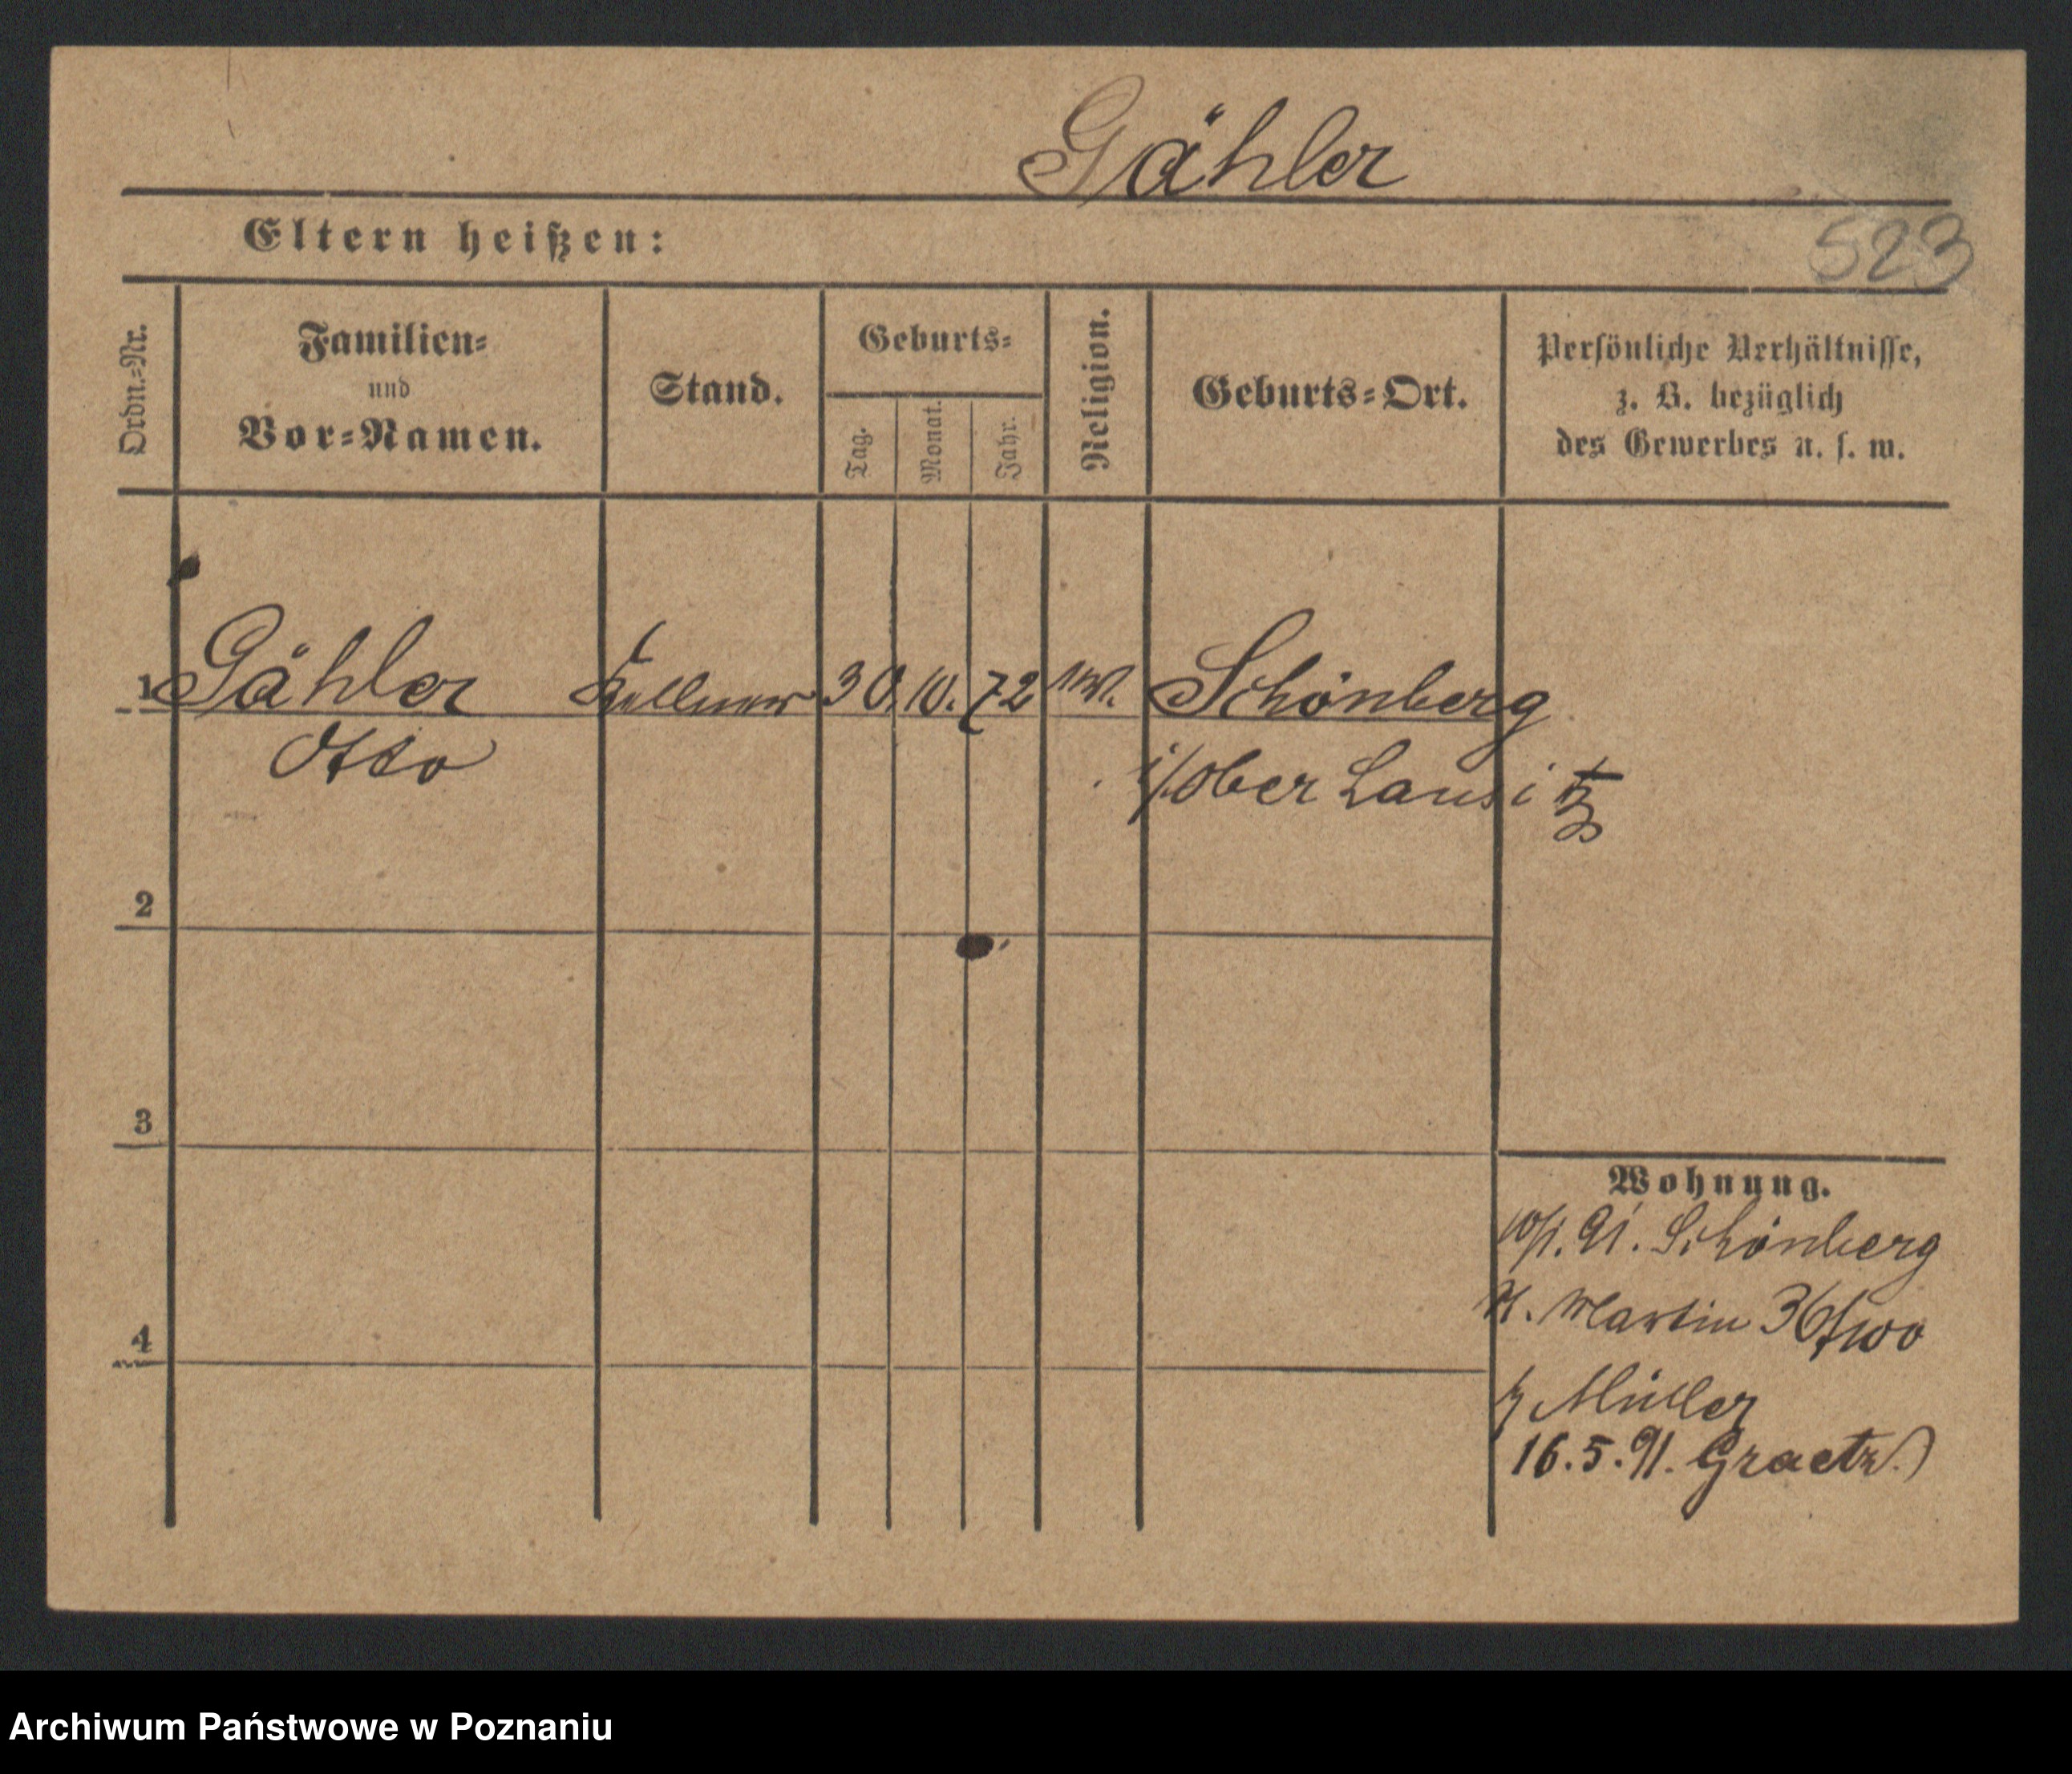 Gähler
Eltern heißen:
523
Ordn.-Nr.
Familien-
und
Vor-Namen.
Stand.
Geburts-
Tag.
Monat.
Jahr.
Religion.
Geburts-Ort.
Persönliche Verhältnisse,
z. B. bezüglich
des Gewerbes u. s. w.
1 Gähler Kellner 30. 10. 72 Schönberg
Otto i/Ober Lausitz
2
3
4
Wohnung.
10/1. 91. Schönberg
St. Martin 36
Müller
16.5.91. Graetz
Archiwum Państwowe w Poznaniu